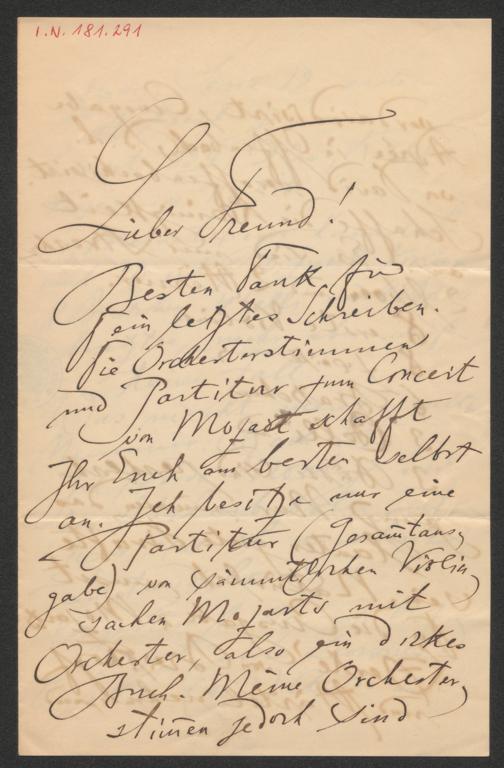 I.N. 181.291
Lieber Freund!
Besten Dank für
Dein letztes Schreiben.
Die Orchesterstimmen
und Partitur zum Concert
von Mozart schafft
Ihr Euch am besten selbst
an. Ich besitze nur eine
Partitur (Gesam̄taus-
gabe) von sämmtlichen Violin-
sachen Mozarts mit
Orchester, also ein dickes
Buch. Meine Orchester-
stim̄en jedoch sind